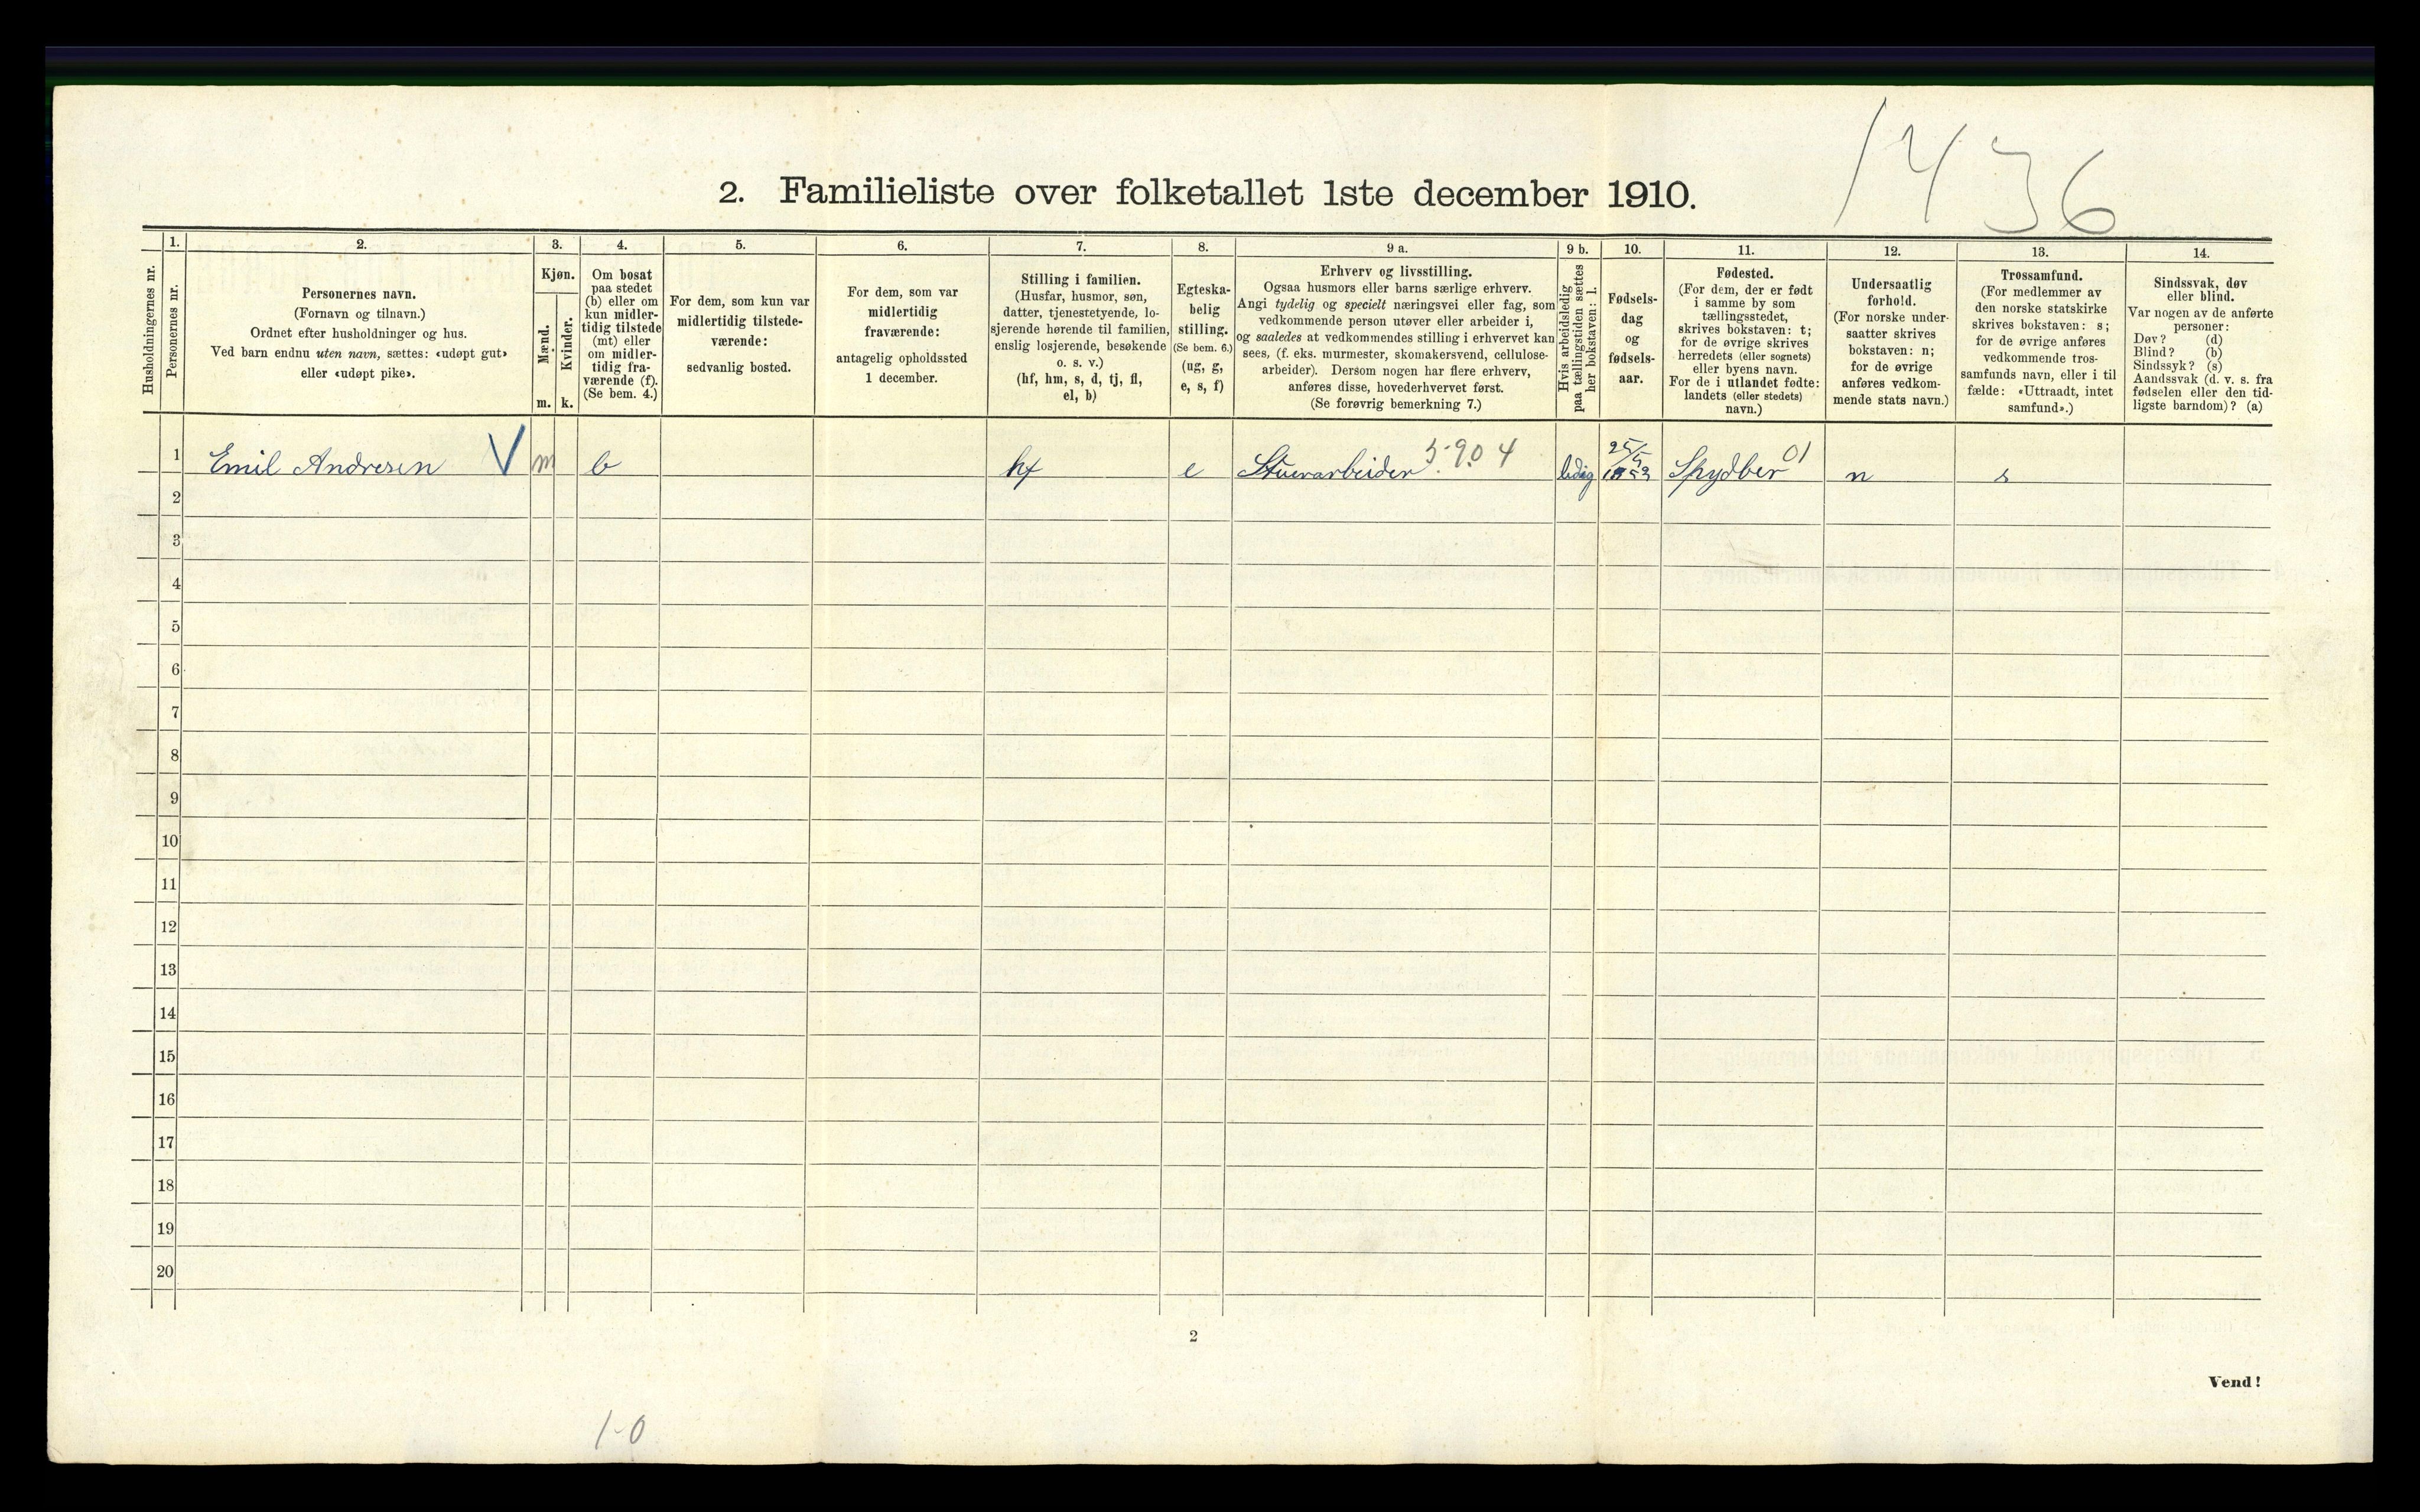 1436
2. Familieliste over folketallet 1ste december 1910.
Husholdningernes nr.
1.
Personernes nr.
2.
Personernes navn.
(Fornavn og tilnavn.)
Ordnet efter husholdninger og hus.
Ved barn endnu uten navn, sættes: «udøpt gut»
eller «udøpt pike».
3.
Kjøn.
Mænd.
Kvinder.
m. k.
4.
Om bosat
paa stedet
(b) eller om
kun midler-
tidig tilstede
(mt) eller
om midler-
tidig fra-
værende (f).
(Se bem. 4.)
5.
For dem, som kun var
midlertidig tilstede-
værende:
sedvanlig bosted.
6.
For dem, som var
midlertidig
fraværende:
antagelig opholdssted
1 december.
7.
Stilling i familien.
(Husfar, husmor, søn,
datter, tjenestetyende, lo-
sjerende hørende til familien,
enslig losjerende, besøkende
o. s. v.)
(hf, hm, s, d, tj, fl,
el, b)
8.
Egteska-
belig
stilling.
(Se bem. 6.)
(ug, g,
e, s, f)
9 a.
Erhverv og livsstilling.
Ogsaa husmors eller barns særlige erhverv.
Angi tydelig og specielt næringsvei eller fag, som
vedkommende person utøver eller arbeider i,
og saaledes at vedkommendes stilling i erhvervet kan
sees, (f. eks. murmester, skomakersvend, cellulose-
arbeider). Dersom nogen har flere erhverv,
anføres disse, hovederhvervet først.
(Se forøvrig bemerkning 7.)
9 b.
Hvis arbeidsledig
paa tællingstiden sættes
her bokstaven: l.
10.
Fødsels-
dag
og
fødsels-
aar.
11.
Fødested.
(For dem, der er født
i samme by som
tællingsstedet,
skrives bokstaven: t;
for de øvrige skrives
herredets (eller sognets)
eller byens navn.
For de i utlandet fødte:
landets (eller stedets)
navn.)
12.
Undersaatlig
forhold.
(For norske under-
saatter skrives
bokstaven: n;
for de øvrige
anføres vedkom-
mende stats navn.)
13.
Trossamfund.
(For medlemmer av
den norske statskirke
skrives bokstaven: s;
for de øvrige anføres
vedkommende tros-
samfunds navn, eller i til
fælde: «Uttraadt, intet
samfund».)
14.
Sindssvak, døv
eller blind.
Var nogen av de anførte
personer:
Døv? (d)
Blind? (b)
Sindssyk? (s)
Aandssvak (d. v. s. fra
fødselen eller den tid-
ligste barndom)? (a)
1 Emil Andresen V m b hf e Stuerarbeider 5.90 4 ledig 25/5 Spydber 01 n s
2
3
4
5
6
7
8
9
10
11
12
13
14
15
16
17
18
19
20
2
Vend!
1-0